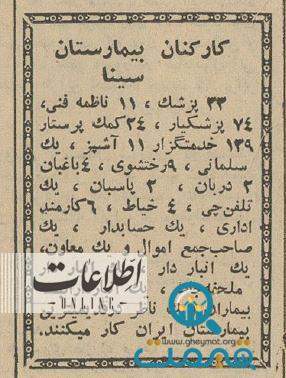 کارکنان بیمارستان
سینا
۳۳ پزشك ، ۱۱ ناظمه فنی،
۷۴ پزشکیار ، ۲۴ کمك پرستار
۱۳۹ خدمتگزار ۱۱ آشپز ، یك
سلمانی ، ۹رختشوی ، ۴باغبان
۲ دربان ، ۲ پاسبان ، یك
تلفن‌چی ، ۴ خیاط ، ۶کارمند
اداری ، یك حسابدار ، یك
صاحب‌جمع اموال و یك معاون،
یك انبار دار
بیماران ناظر
بیمارستان ایران کار میکنند.
اطلاعات
قیمت
www.gheymat.org